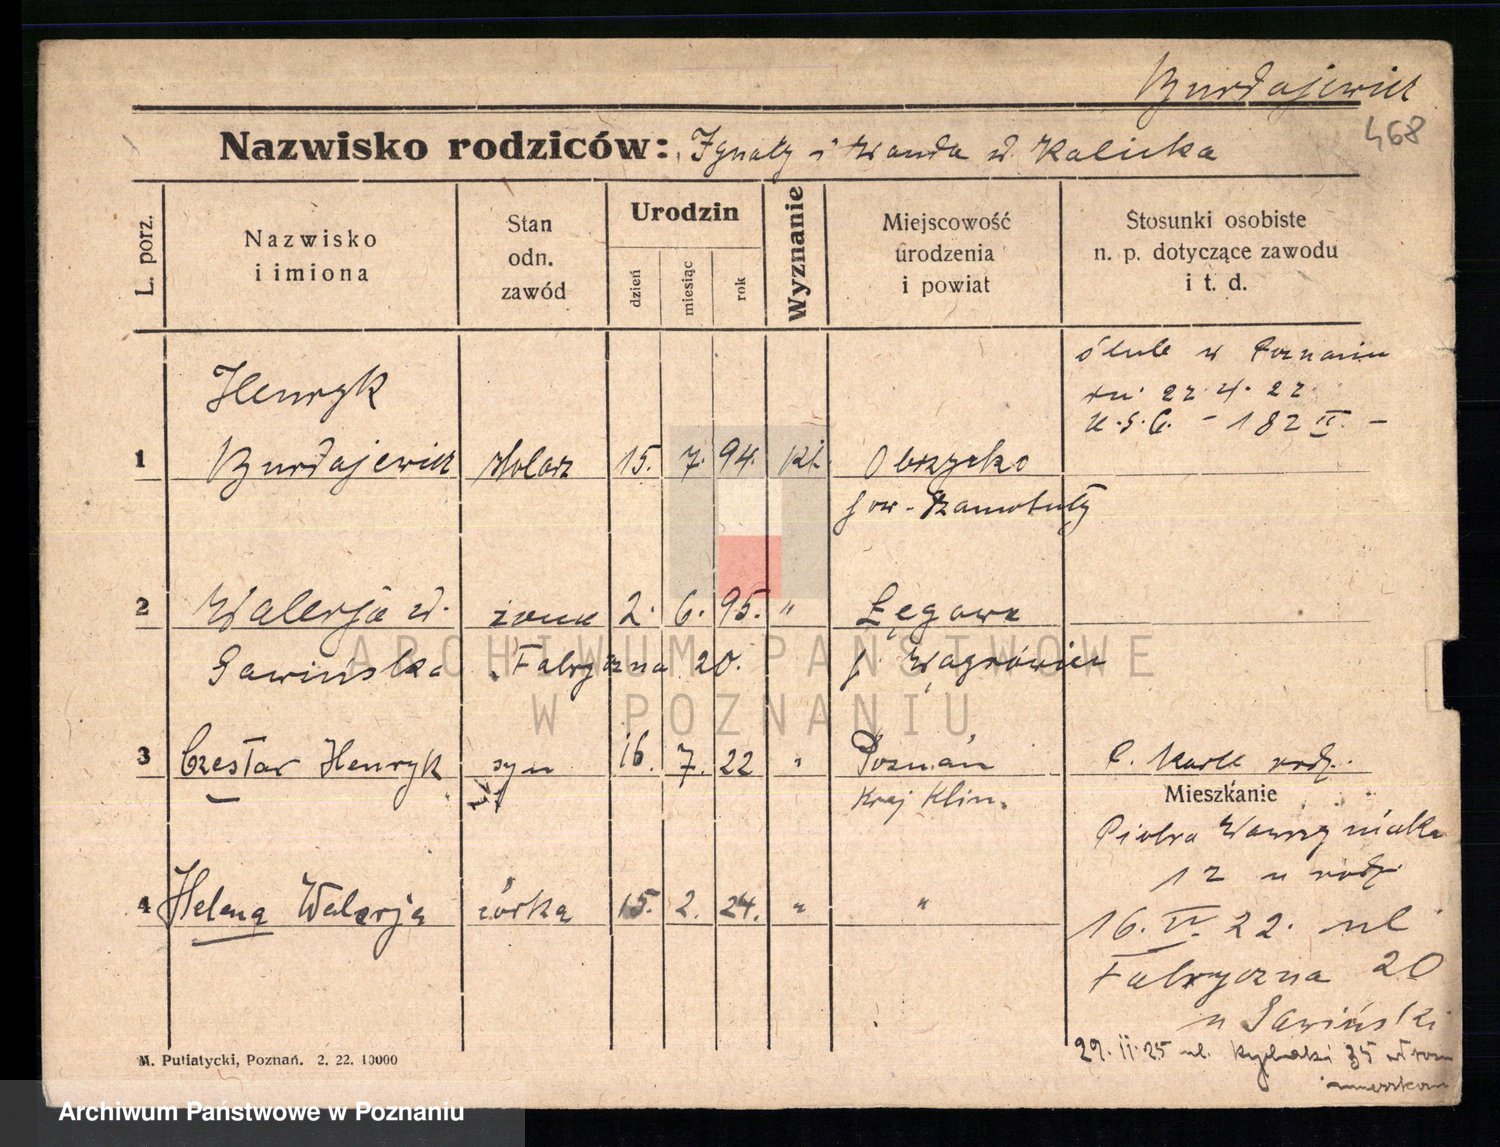 Burdajewicz
468
Nazwisko rodziców: Ignacy i Wanda ud. Kalicka
L. porz.
Nazwisko i imiona
Stan odn. zawód
Urodzin
dzień
miesiąc
rok
Wyznanie
Miejscowość urodzenia i powiat
Stosunki osobiste n. p. dotyczące zawodu i t. d.
ślub w Poznaniu
dn. 22.4.22.
U.S.C. - 182 II. -
Henryk
1 Burdajewicz stolarz 15. 7. 94. kt. Obrzycko
pow. Szamotuły
2 Walerja ud. żona 2. 6. 95. " Łęgowo
Gawińska Fabryczna 20. p. Wągrówiec
3 Czesław Henryk syn 16. 7. 22 " Poznań
Kraj Klin.
Mieszkanie
Piotra Wawrzyniaka
12 u rodz.
4 Helena Walerja córka 15. 2. 24. " "
16. IV. 22. ul
Fabryczna 20
u Gawiński
29.II.25 ul. 35
M. Putiatycki, Poznań. 2. 22. 10000
ARCHIWUM PAŃSTWOWE
W POZNANIU
Archiwum Państwowe w Poznaniu